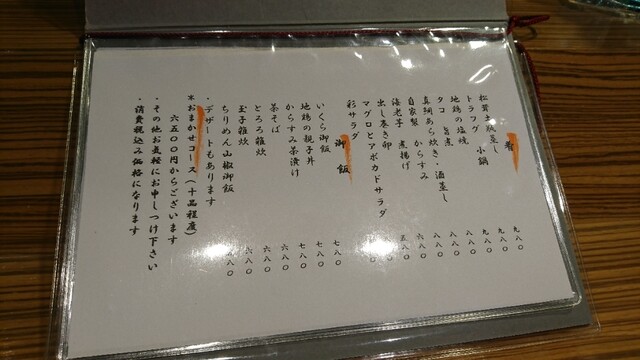 肴
松茸土瓶蒸し 九八〇
トラフグ 小鍋 九八〇
地鶏の塩焼 九八〇
タコ 旨煮 八八〇
真鯛あら炊き・酒蒸し 八八〇
自家製 からすみ 八八〇
海老芋 煮揚げ 六八〇
出し巻き卵 五八〇
マグロとアボカドサラダ
彩サラダ
御飯
いくら御飯 七八〇
地鶏の親子丼 七八〇
からすみ茶漬け 七八〇
茶そば 六八〇
とろろ雑炊 六八〇
玉子雑炊 六八〇
ちりめん山椒御飯 八〇
・デザートもあります
*おまかせコース(十品程度)
六五〇〇円からございます
・その他お気軽にお申しつけ下さい
・消費税込み価格になります